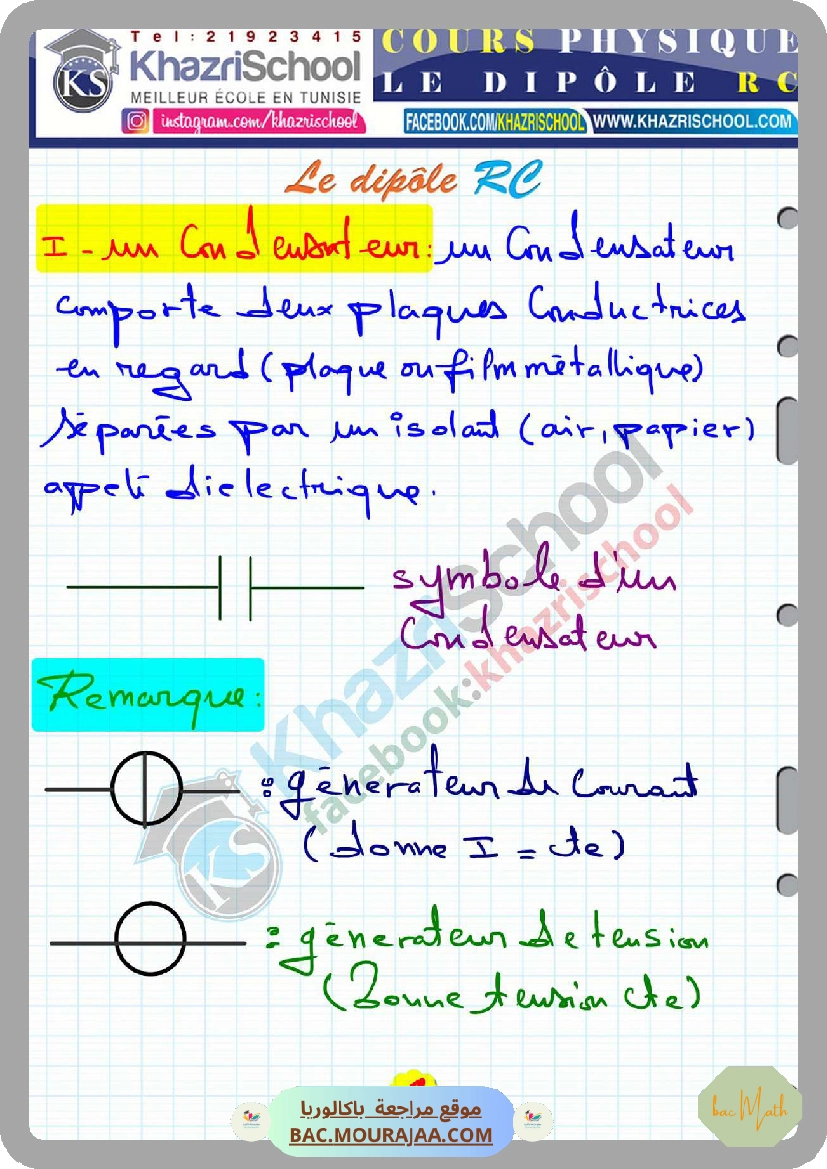 Tel:21923415
KhazriSchool
MEILLEUR ÉCOLE EN TUNISIE
instagram.com/khazrischool
COURS PHYSIQUE
LE DIPÔLE RC
FACEBOOK.COM/KHAZRISCHOOL
WWW.KHAZRISCHOOL.COM
KS
Le dipôle RC
I - un Condensateur: un Condensateur
comporte deux plaques Conductrices
en regard (plaque ou film métallique)
séparées par un isolant (air, papier)
appelé dielectrique.
symbole d'un
Condensateur
Remarque:
: génerateur de Courant
(donne I = cte)
: génerateur de tension
(Donne tension cte)
KhazriSchool
facebook:khazrischool
KS
موقع مراجعة باكالوريا
BAC.MOURAJAA.COM
bac Math